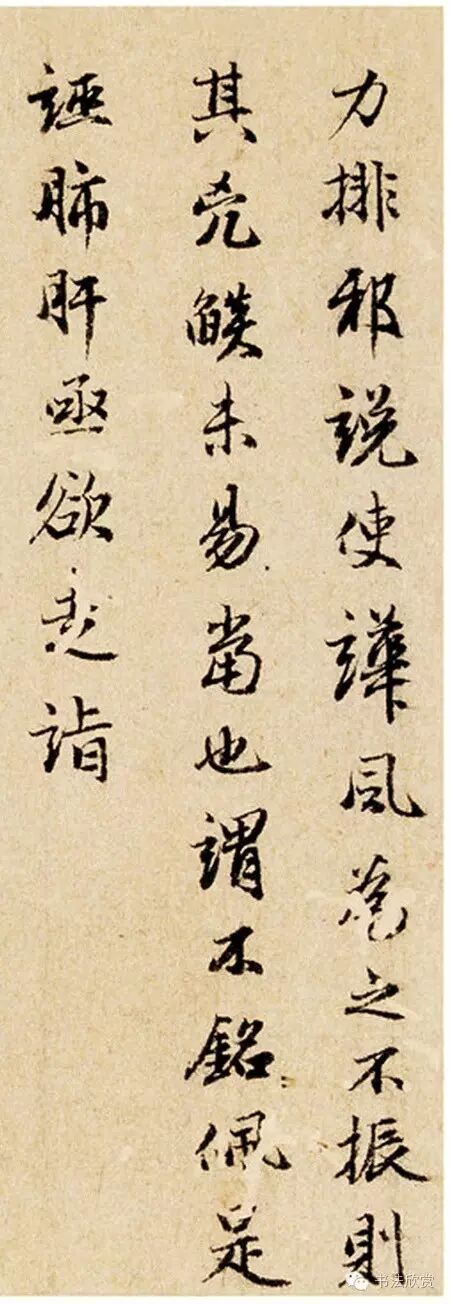 力排邪説使譁風為之不振則
其兇燄未易當也謂不銘佩是
誣肺肝亟欲走詣
书法欣赏